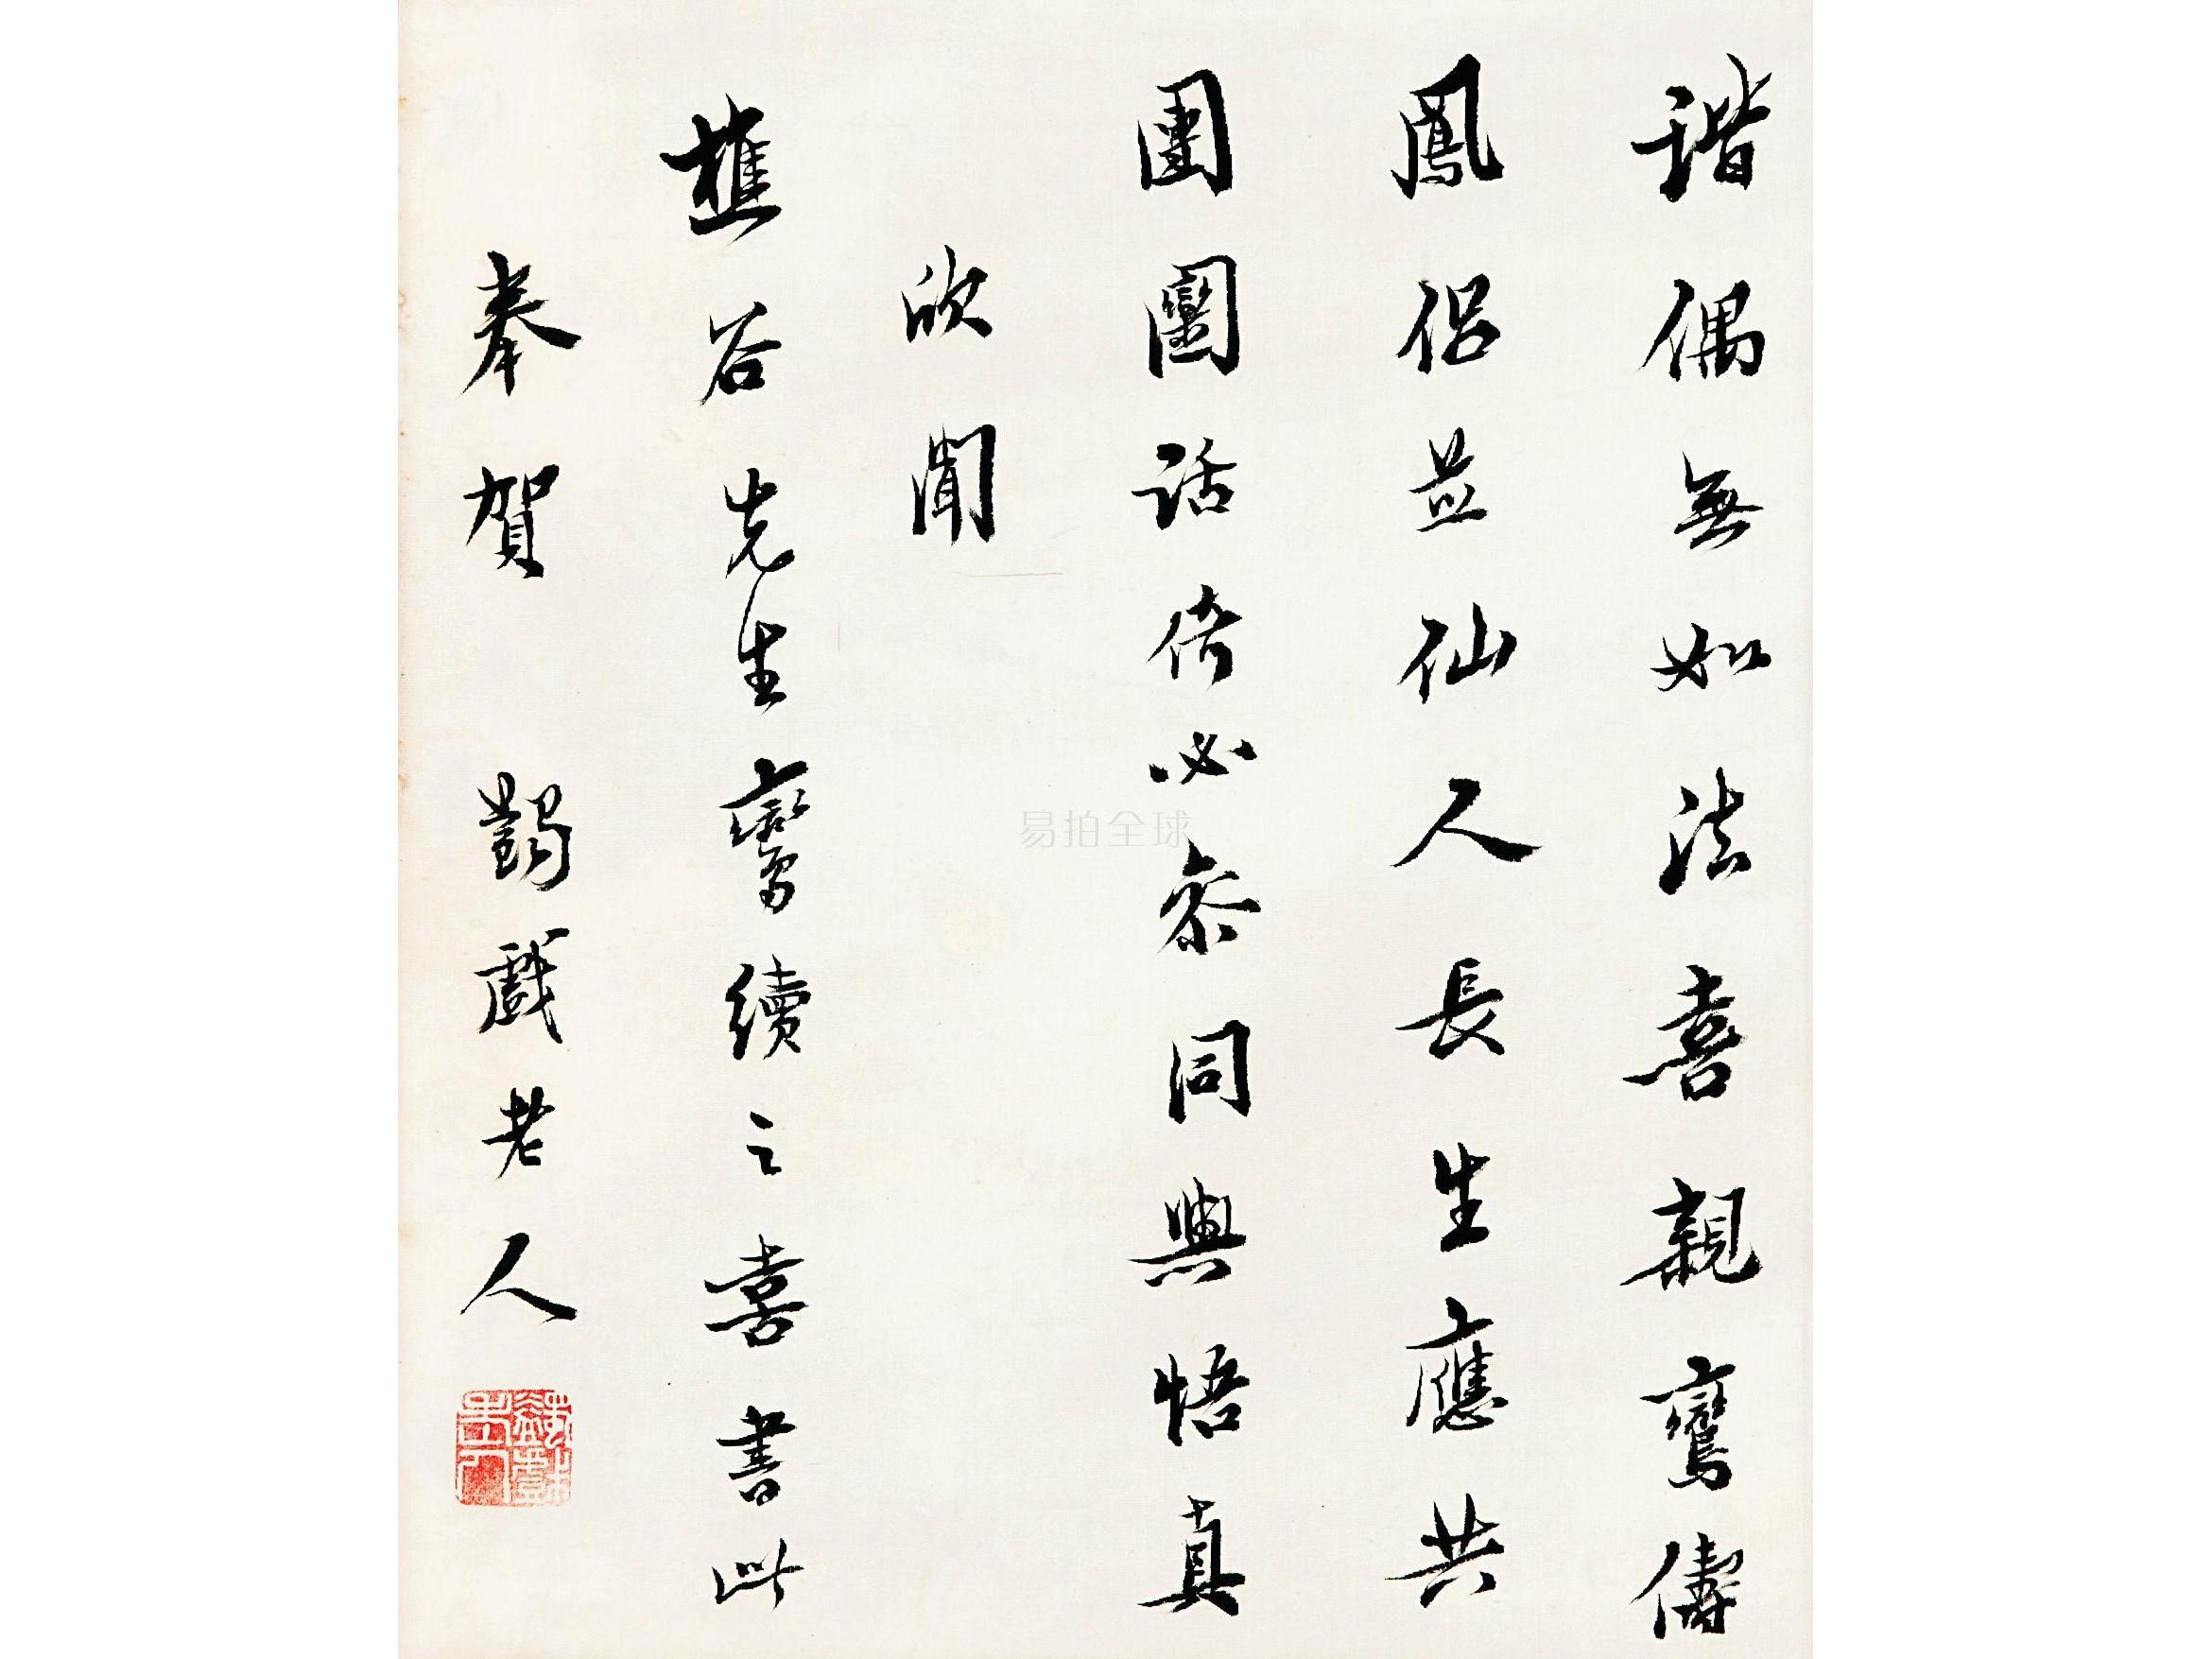 諧偶無如法喜親鸞儔
鳳侶並仙人長生應共
團圞話倚必參同與悟真
欣聞
樵谷先生鸞續之喜書此
奉賀 蠲戲老人
易拍全球
蠲戲老人